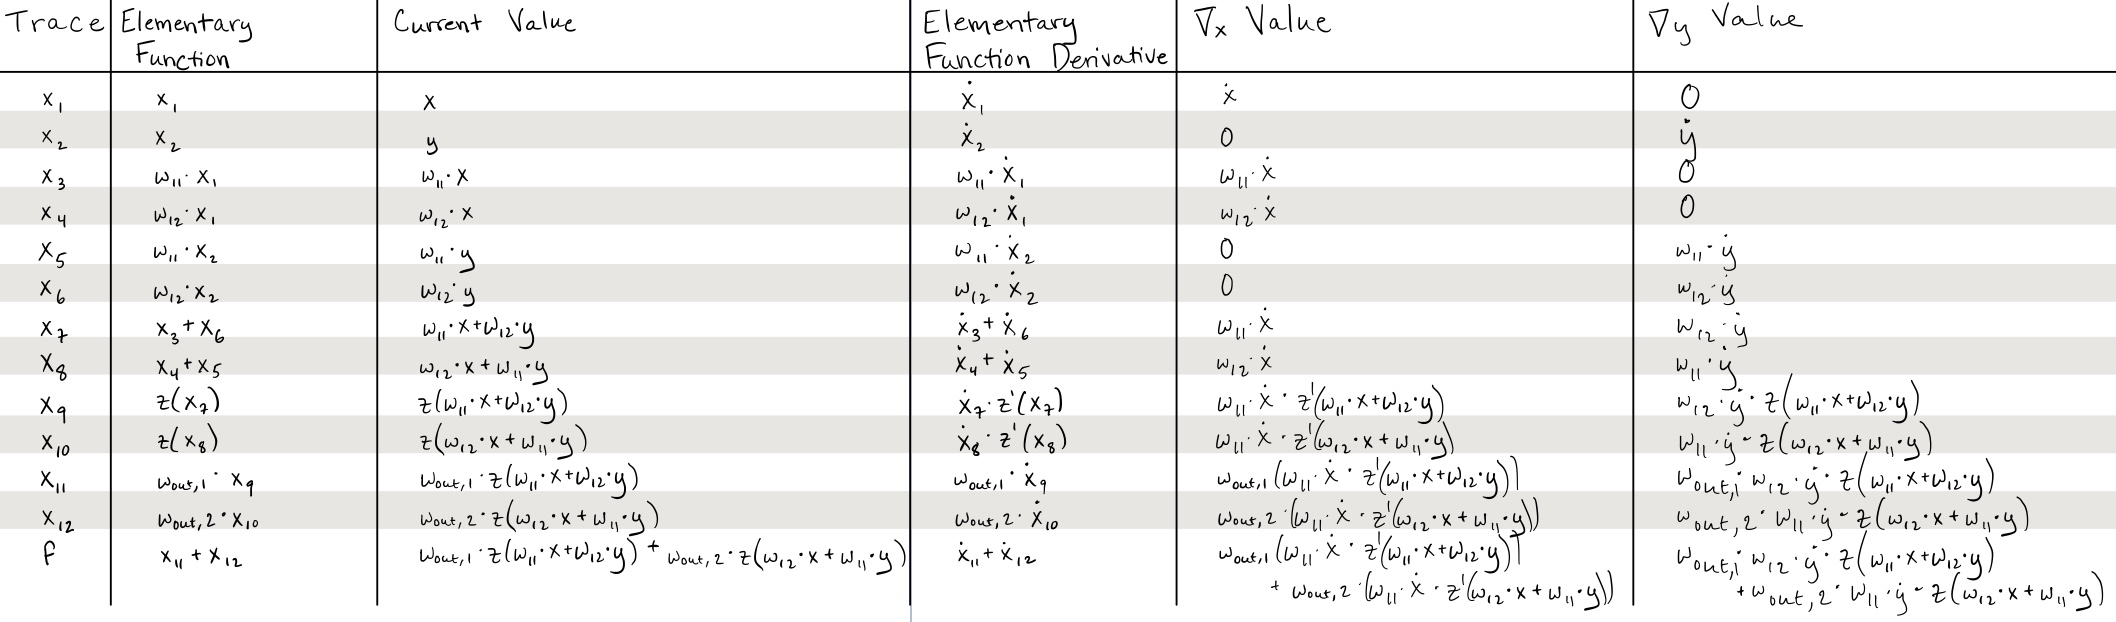 Trace Elementary Function Current Value Elementary Function Derivative ∇x Value ∇y Value
x₁ x₁ x ẋ₁ ẋ 0
x₂ x₂ y ẋ₂ 0 ẏ
x₃ w₁₁·x₁ w₁₁·x w₁₁·ẋ₁ w₁₁·ẋ 0
x₄ w₁₂·x₁ w₁₂·x w₁₂·ẋ₁ w₁₂·ẋ 0
x₅ w₁₁·x₂ w₁₁·y w₁₁·ẋ₂ 0 w₁₁·ẏ
x₆ w₁₂·x₂ w₁₂·y w₁₂·ẋ₂ 0 w₁₂·ẏ
x₇ x₃+x₆ w₁₁·x+w₁₂·y ẋ₃+ẋ₆ w₁₁·ẋ w₁₂·ẏ
x₈ x₄+x₅ w₁₂·x+w₁₁·y ẋ₄+ẋ₅ w₁₂·ẋ w₁₁·ẏ
x₉ z(x₇) z(w₁₁·x+w₁₂·y) ẋ₇·z'(x₇) w₁₁·ẋ·z'(w₁₁·x+w₁₂·y) w₁₂·ẏ·z(w₁₁·x+w₁₂·y)
x₁₀ z(x₈) z(w₁₂·x+w₁₁·y) ẋ₈·z'(x₈) w₁₁·ẋ·z'(w₁₂·x+w₁₁·y) w₁₁·ẏ·z(w₁₂·x+w₁₁·y)
x₁₁ w_out,1·x₉ w_out,1·z(w₁₁·x+w₁₂·y) w_out,1·ẋ₉ w_out,1(w₁₁·ẋ·z'(w₁₁·x+w₁₂·y)) w_out,1·w₁₂·ẏ·z(w₁₁·x+w₁₂·y)
x₁₂ w_out,2·x₁₀ w_out,2·z(w₁₂·x+w₁₁·y) w_out,2·ẋ₁₀ w_out,2·(w₁₁·ẋ·z'(w₁₂·x+w₁₁·y)) w_out,2·w₁₁·ẏ·z(w₁₂·x+w₁₁·y)
f x₁₁+x₁₂ w_out,1·z(w₁₁·x+w₁₂·y)+w_out,2·z(w₁₂·x+w₁₁·y) ẋ₁₁+ẋ₁₂ w_out,1(w₁₁·ẋ·z'(w₁₁·x+w₁₂·y)) w_out,1·w₁₂·ẏ·z(w₁₁·x+w₁₂·y)
+w_out,2·(w₁₁·ẋ·z'(w₁₂·x+w₁₁·y)) +w_out,2·w₁₁·ẏ·z(w₁₂·x+w₁₁·y)